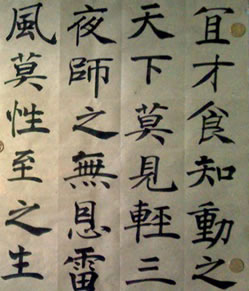 宜才食知動之
天下莫見輕三
夜師之無恩雷
風莫性至之生